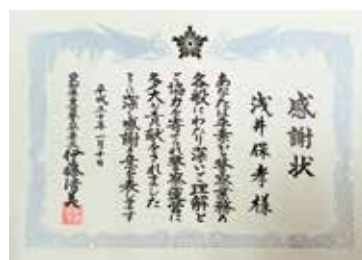 感謝状
浅井保孝様
あなたは平素から警察業務の
各般にわたり深いご理解と
ご協力を寄せられ警察運営に
多大な貢献をされました
よって深く感謝の意を表します
平成三十年一月十日